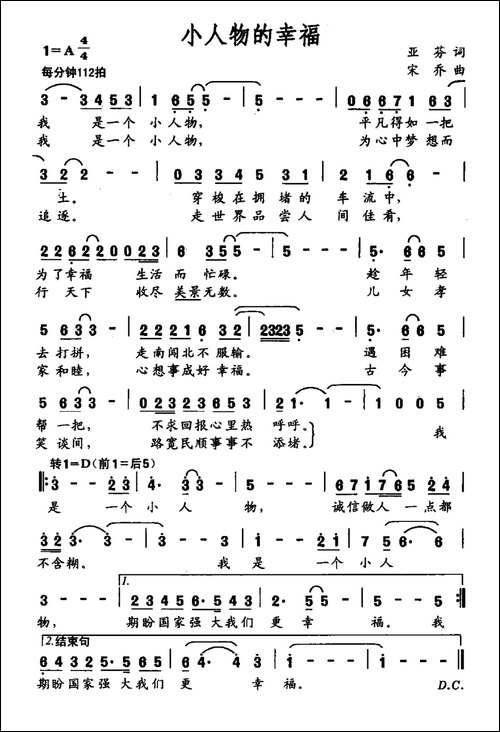 小人物的幸福
1=A 4/4
亚 芬 词
每分钟112拍
宋 乔 曲
3 - 3 4 5 3 | 1 6 5 5 - | 5 - - - | 0 6 6 7 1 6 3 |
我 是一个 小人物, 平凡得如一把
我 是一个 小人物, 为心中梦想而
3 2 2 - - | 0 3 3 4 5 3 1 | 2 1 6 6 - |
土。 穿梭在拥堵的 车流中,
追逐。 走世界品尝人 间佳肴,
2 2 6 2 2 0 0 2 3 | 6 3 5 5 - | 5 - - - | 5· 6 6 5 |
为了幸福 生活而 忙碌。 趁年轻
行天下 收尽美景无数。 儿女孝
5 6 3 3 - - | 2 2 2 2 1 6 3 2 2 - | 2 3 2 3 5 - - - | 5· 6 6 5 |
去打拼, 走南闯北不服输。 遇困难
家和睦, 心想事成好幸福。 古今事
5 6 3 3 - - | 0 2 3 2 3 6 5 3 | 2 1· 1 - | 1 0 0 5 |
帮一把, 不求回报心里热 呼呼。 我
笑谈间, 路宽民顺事事不 添堵。
转1=D(前1=后5)
3 - - 2 3 | 4· 3 1 - | 3 - - - | 6 7 1 7 6 5 2 4 |
是 一个 小人 物, 诚信做人一点都
3 2 3· 3 - | 3 - - 5 | 1 - - 2 1 | 7 5 6· 6 |
不含糊。 我 是 一个 小人
1.
3 - - - | 2 3 4 5 6· 5 6 | 5 2· 2 - | 5 - - 5 :|
物, 期盼国家强大我们 更幸 福。 我
2.结束句
6 4 3 2 3· 5 6 5 | 6 4· 4 3 | 1 - - - | 1 - - - |
期盼国家强大我们 更 幸 福。 D.C.